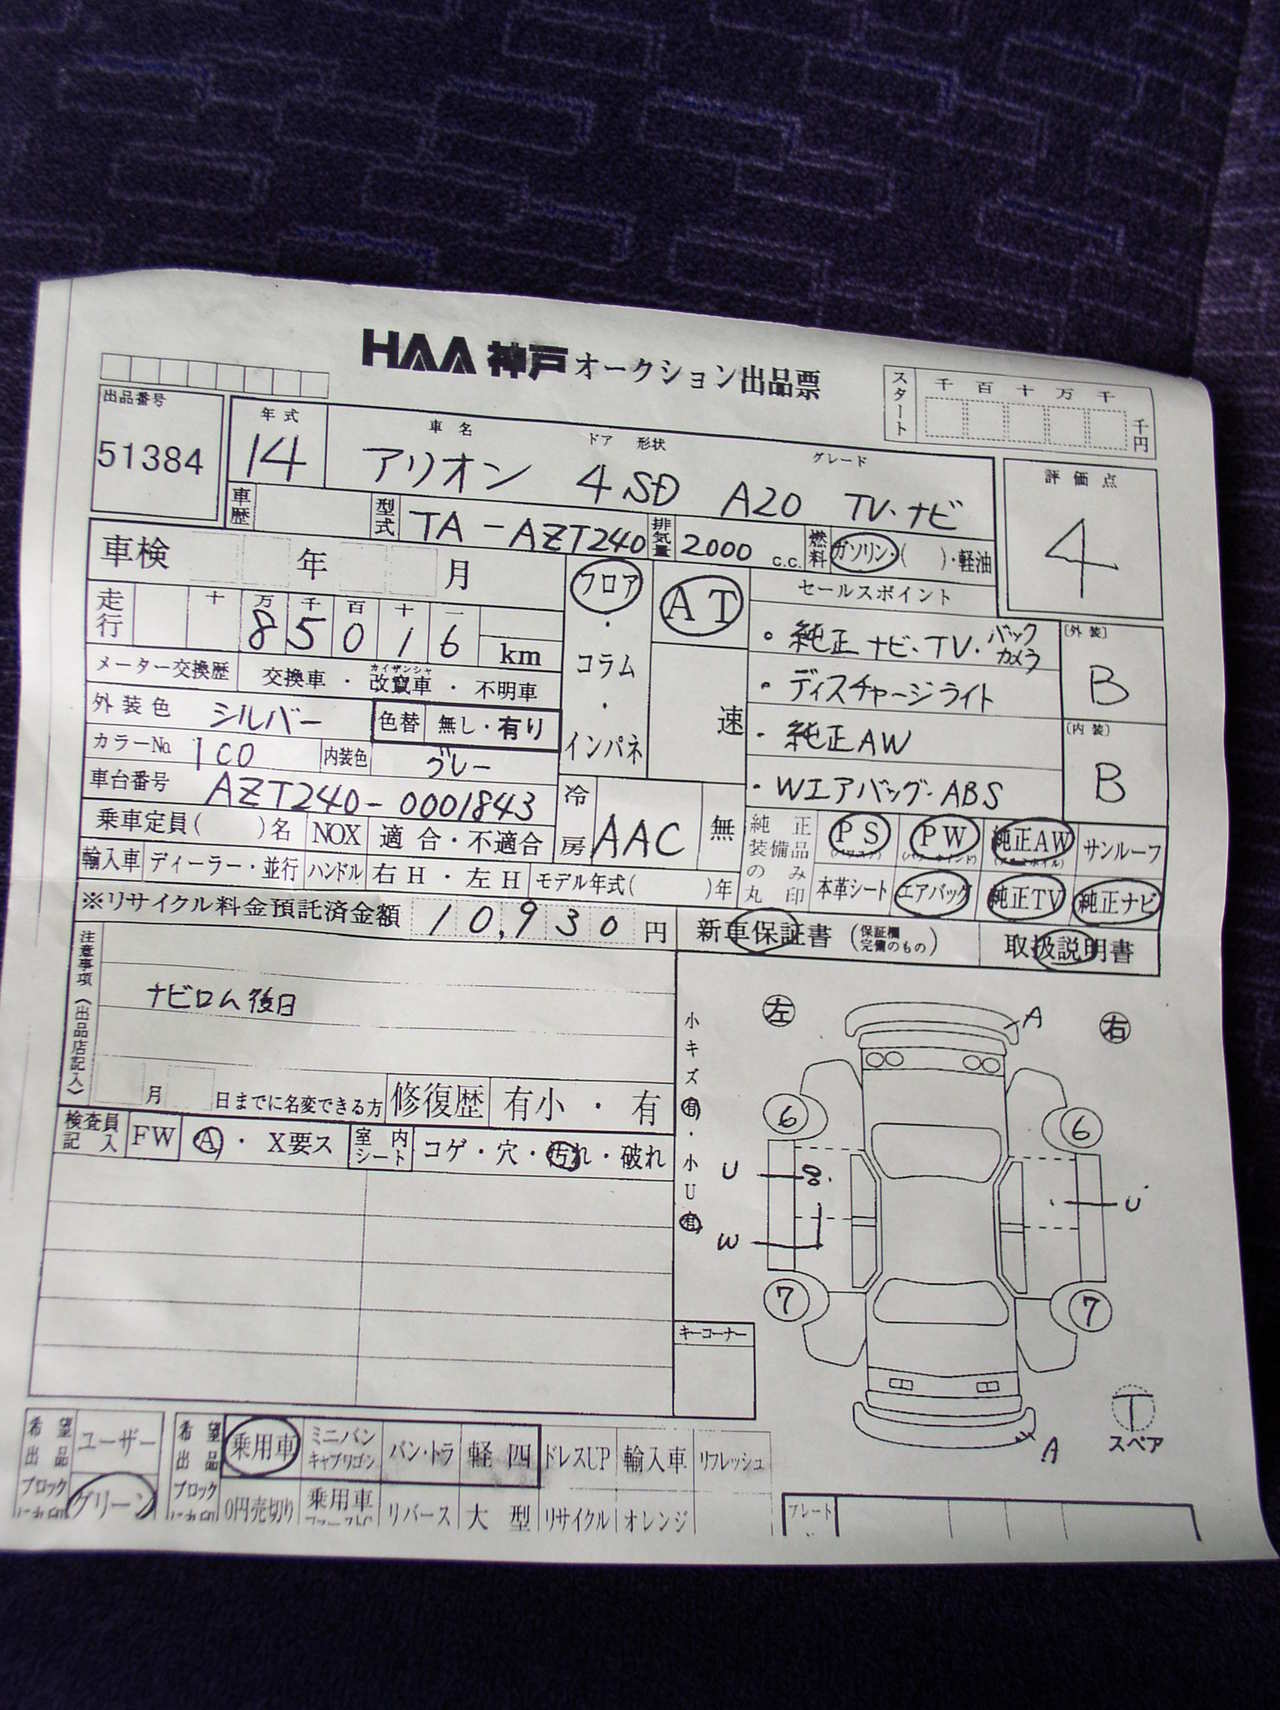 HAA 神戸 オークション出品票
スタート 千 百 十 万 千 千円
出品番号 51384
年式 14
車名 アリオン ドア 形状 4SD グレード A20 TV・ナビ
評価点 4
車歴 型式 TA-AZT240 排気量 2000 c.c. 燃料 ガソリン・( )・軽油
車検 年 月
フロア・コラム・インパネ
AT 速
セールスポイント
走行 十 万 千 百 十 一 85016 km
・純正ナビ・TV・バックカメラ
・ディスチャージライト
・純正AW
・Wエアバッグ・ABS
〔外装〕 B
〔内装〕 B
メーター交換歴 交換車・改竄車・不明車
カイザンシャ
外装色 シルバー 色替 無し・有り
カラーNo. 1C0 内装色 グレー
車台番号 AZT240-0001843
冷房 AAC 無
乗車定員( )名 NOX 適合・不適合
純正装備品のみ丸印 PS PW 純正AW サンルーフ
本革シート エアバッグ 純正TV 純正ナビ
輸入車 ディーラー・並行 ハンドル 右H・左H モデル年式( )年
※リサイクル料金預託済金額 10,930円
新車保証書 (保証欄完備のもの) 取扱説明書
注意事項《出品店記入》
ナビロム後日
月 日までに名変できる方 修復歴 有小・有
検査員記入 FW A・X要ス 室内シート コゲ・穴・汚れ・破れ
小キズ有・小U有
左 右
A
6 6
U 8. U
W
7 7
A
T
スペア
キーコーナー
希望出品ブロック ユーザー グリーン
希望出品ブロック 乗用車 ミニバンキャブワゴン バン・トラ 軽四 ドレスUP 輸入車 リフレッシュ
0円売切り 乗用車 リバース 大型 リサイクル オレンジ
プレート